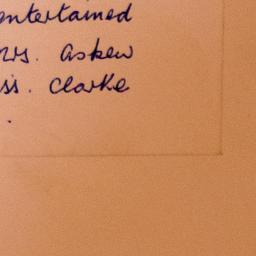 entertained
Mrs. Askew
ss. Clarke
.